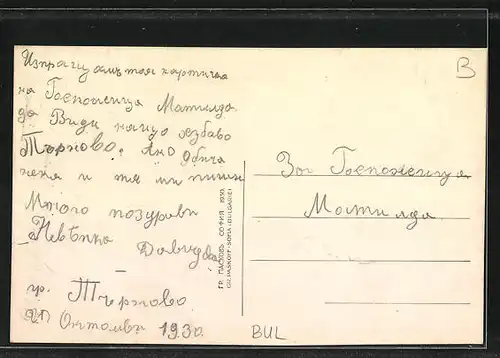 Изпращамъ тая картичка
на Госпожица Матилда
да види нашо хубаво
Търново. Ако обича
нека и тя ми пише
Много поздрави
Невѣнка Давидова
гр. Търново
21 Октомври 1930
За Госпожица
Матилда
ГР. ПАСКОВЪ СОФИЯ 1930
GR. PASKOFF-SOFIA (BULGARIE)
B
BUL